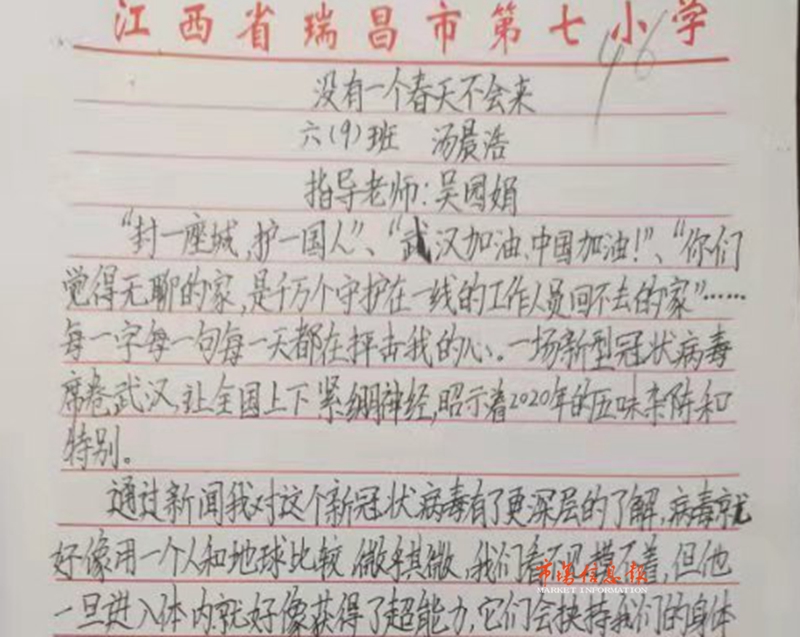 江西省瑞昌市第七小学
46
没有一个春天不会来
六(9)班 汤晨浩
指导老师:吴园娟
“封一座城,护一国人”、“武汉加油、中国加油!”、“你们
觉得无聊的家,是千万个守护在一线的工作人员回不去的家”……
每一字每一句每一天都在抨击我的心。一场新型冠状病毒
席卷武汉,让全国上下紧绷神经,昭示着2020年的五味杂陈和
特别。
通过新闻我对这个新冠状病毒有了更深层的了解,病毒就
好像用一个人和地球比较,微乎其微,我们看不见摸不着,但他
一旦进入体内就好像获得了超能力,它们会挟持我们的身体
市场信息报
MARKET INFORMATION